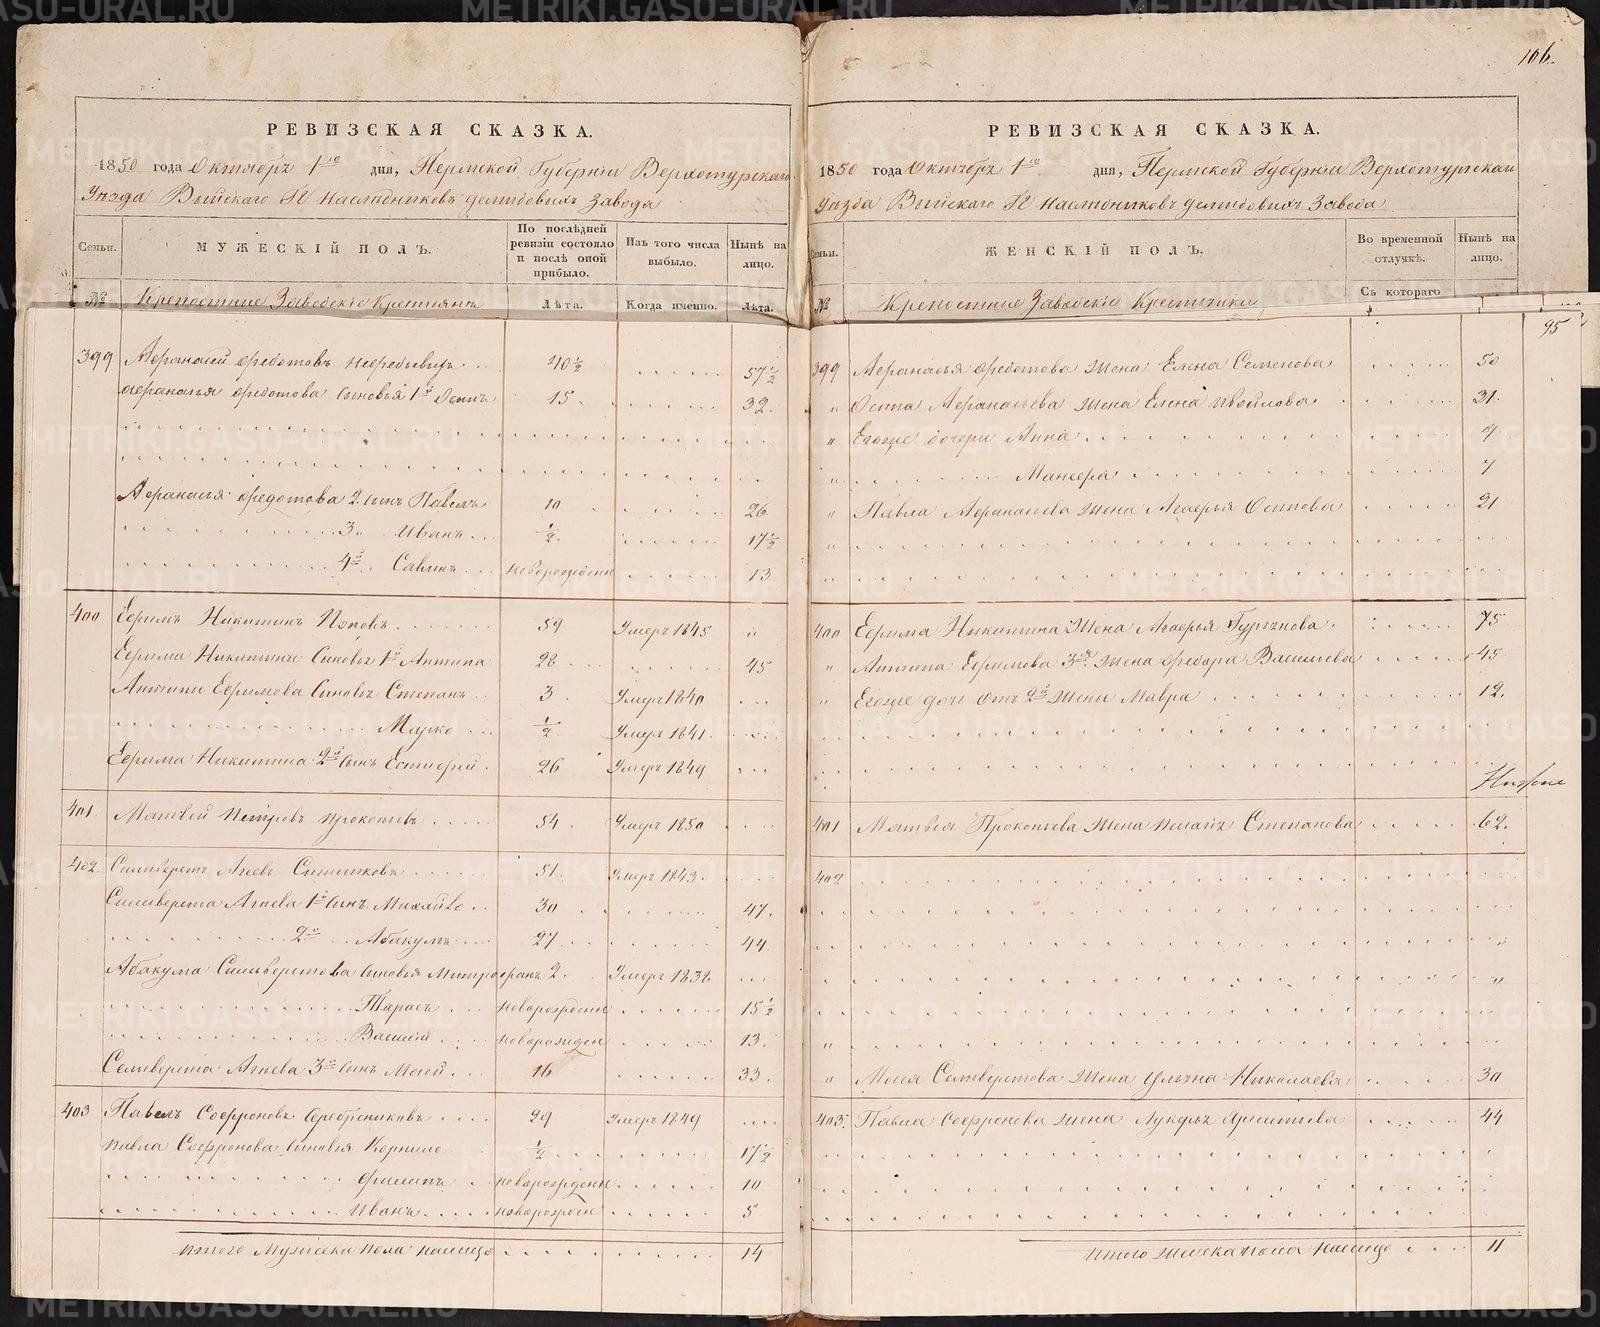 106.
РЕВИЗСКАЯ СКАЗКА.
1850 года Октября 1го дня, Пермской Губерніи Верхотурскаго
Уезда Выйскаго Гг Наследниковъ Демидовыхъ Завода
Семьи. МУЖЕСКІЙ ПОЛЪ. По последней ревизіи состояло и после оной прибыло. Изъ того числа выбыло. Ныне на лицо.
№ Крепостные Заводскіе Крестьяне Лета. Когда именно. Лета.
399 Афанасей Федотовъ 40½ 57½
Афанасья Федотова сыновья 1й Осипъ 15 32.
Афанасья Федотова 2. сынъ Павелъ 10 26
3й Иванъ ½ 17½
4й Савинъ новорожденъ 13
400 Ефимъ Никитинъ Поповъ 59 Умеръ 1845 "
Ефима Никитина Сыновья 1й Антипа 28 45
Антипы Ефимова Сыновья Степанъ 3 Умеръ 1840
Марко ½ Умеръ 1841
Ефима Никитина 2й сынъ Естифей 26 Умеръ 1849
401 Матвей Петровъ Прокопьевъ 54 Умеръ 1850
402 Силиверстъ Агеевъ Ситниковъ 51 Умеръ 1843
Силиверста Агеева 1й Сынъ Михайло 30 47.
2й Абакумъ 27 44
Абакума Сильверстова сыновья Митрофанъ 2. Умеръ 1838
Тарасъ новорожденъ 15½
Василій новорожденъ 13.
Селиверста Агеева 3й сынъ Мосей 16 33.
403 Павелъ Софроновъ Серебренниковъ 29 Умеръ 1849
Павла Софронова сыновья Корнило ½ 17½
Филипъ новорожденъ 10
Иванъ новорожденъ 5
Итого Мужеска пола налицо 14
РЕВИЗСКАЯ СКАЗКА.
1850 года Октября 1го дня, Пермской Губерніи Верхотурскаго
Уезда Выйскаго Гг Наследниковъ Демидовыхъ Завода
Семьи. ЖЕНСКІЙ ПОЛЪ. Во временной отлучкѣ. Нынѣ на лицо.
№ Крепостные Заводскіе Крестьянки Съ котораго
95
399 Афанасья Федотова жена Елена Семенова 50
" Осипа Афанасьева жена Елена Ивойлова 31.
" Егоже дочери Анна 9
" Манефа 7
" Павла Афанасьева жена Агафья Осипова 21
400 Ефима Никитина жена Агафья 75
" Антипа Ефимова 3я жена Федора Васильева 45
" Егоже дочь отъ 2й жены Мавра 12.
401 Матвея Прокопьева жена Пелагея Степанова 62.
402
" Мосея Селиверстова жена Ульяна Николаева 30
403. Павла Софронова жена Лукерья 44
Итого женска пола налицо 11
METRIKI.GASO-URAL.RU